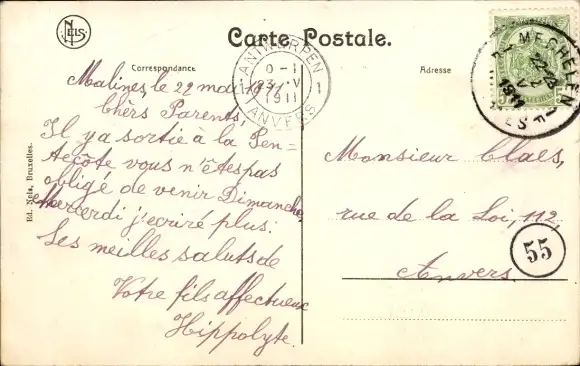 NELS
Carte Postale.
Correspondance
Adresse
ANTWERPEN
1 0-1 1
23 V
1911
ANVERS
MECHELEN
22
1911
Malines, le 22 mai 1911
Chèrs Parents,
Il ya sortie à la Pen=
tecôte vous n'êtes pas
obligé de venir Dimanche,
Mercerdi j'ecriré plus.
Les meilles saluts de
Votre fils affectueux
Hippolyte.
Monsieur Claes,
rue de la Loi, 112,
Anvers.
55
Ed. Nels, Bruxelles.